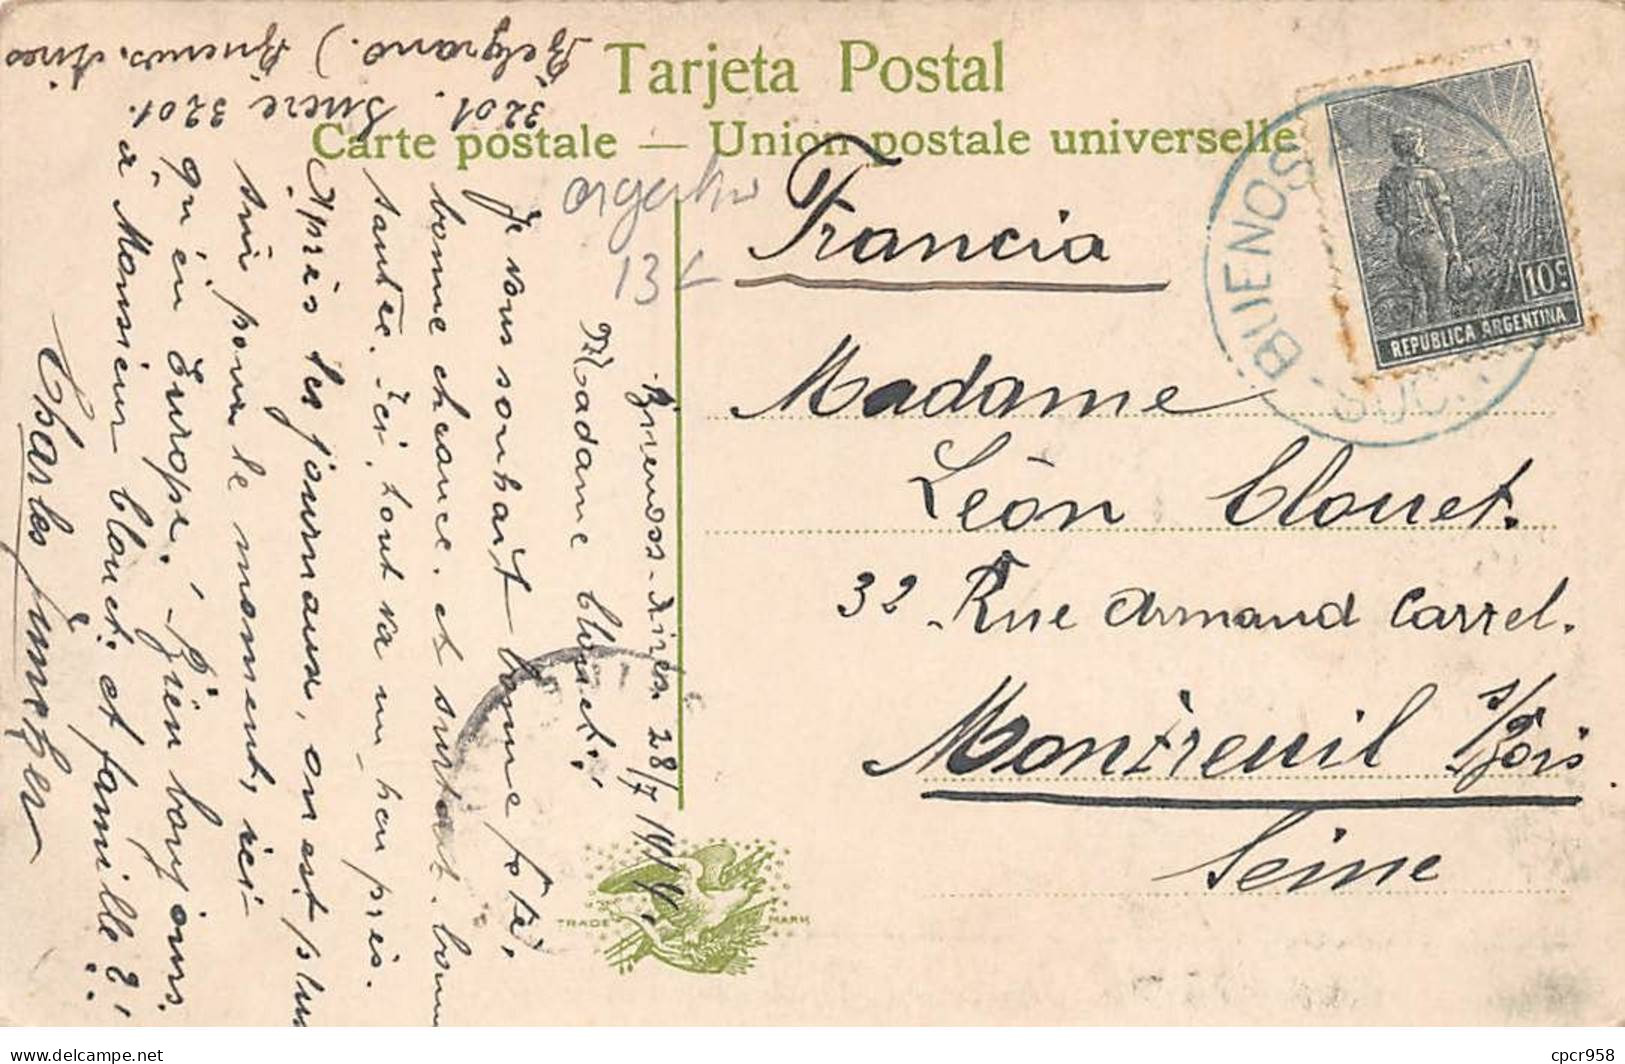 Tarjeta Postal
Carte postale — Union postale universelle
Francia
Madame
Léon Clouet.
32 Rue Armand Carrel.
Montreuil s/Bois
Seine
BUENOS
SUC.
10c
REPUBLICA ARGENTINA
13
Buenoss-Aires 28/7 1914.
Madame Clouet;
Je vous souhait bonne fête,
bonne chance. et surtout. bonn
santée. Ici, tout va un-peu près.
Après les journaux, on est plus
sui pour le moment, ici
qu'en Europe. Bien bonjours.
à Monsieur Clouet. et famille
Charles
3201. Sucre 3201.
Belgrano.) Buenos. Aires
TRADE MARK
cpcr958